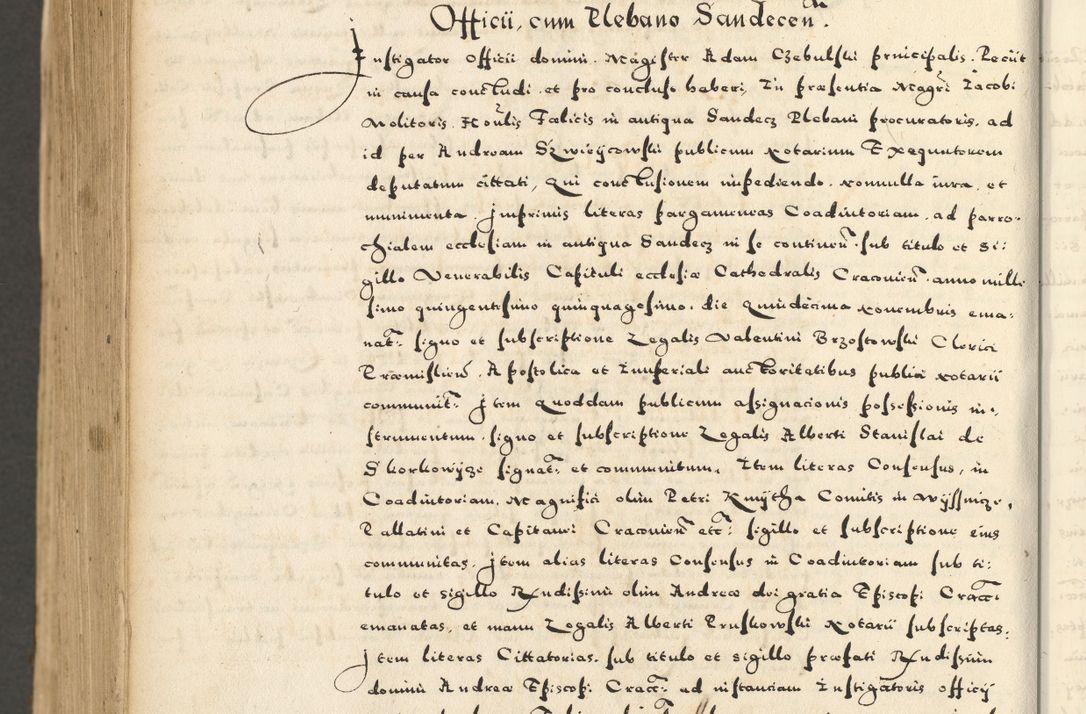 Officii, cum Plebano Sandecen̄.
Instigator Officii domini. Magister Adam Czebulski principalis. Petiit
in causa concludi. et pro concluso haberi, In præsentia Magrī Iacobi
Molitoris. Honlis Fælicis in antiqua Sandecz Plebani procuratoris. ad
id per Andream Szwieycowski publicum Notarium Exequutorem
deputatum cittati, Qui conclusionem impediendo. Nonnulla iura, et
munimenta. Imprimis literas pargameneas Coadiutoriam. ad parro-
chialem ecclesiam in antiqua Sandecz in se continen̄. sub titulo et Si:
gillo Venerabilis Capituli ecclesiæ Cathedralis Cracouien̄. anno mille
simo quingentesimo quinquagesimo. die Quindecima Nouembris ema:
nat: signo et subscriptione Legalis Valentini Brzostowski Clerici
Præmislien̄. Apostolica et Imperiali auctoritatibus publici Notarii
communit: Item Quoddam publicum assignacionis possessionis in:
strumentum. signo et subscriptione Legalis Alberti Stanislai de
Skorkowycze signat: et communitum. Item literas Consensus, in
Coadiutoriam. Magnifici olim Petri Kmytha Comitis in Wyssnicze,
Pallatini et Capitanei Cracouien̄ etc: sigillo et subscriptione eius
communitas. Item alias literas Consensus in Coadiutoriam sub ti:
tulo et sigillo Rndissimi olim Andreæ dei gratia Episcopi Cracc:
emanatas, et manu Legalis Alberti Pruskowski Notarii subscriptas.
Item literas Cittatorias. sub titulo et sigillo præfati Rndissimi
domini Andreæ Episcopi Cracc: ad instantiam Instigatoris officij